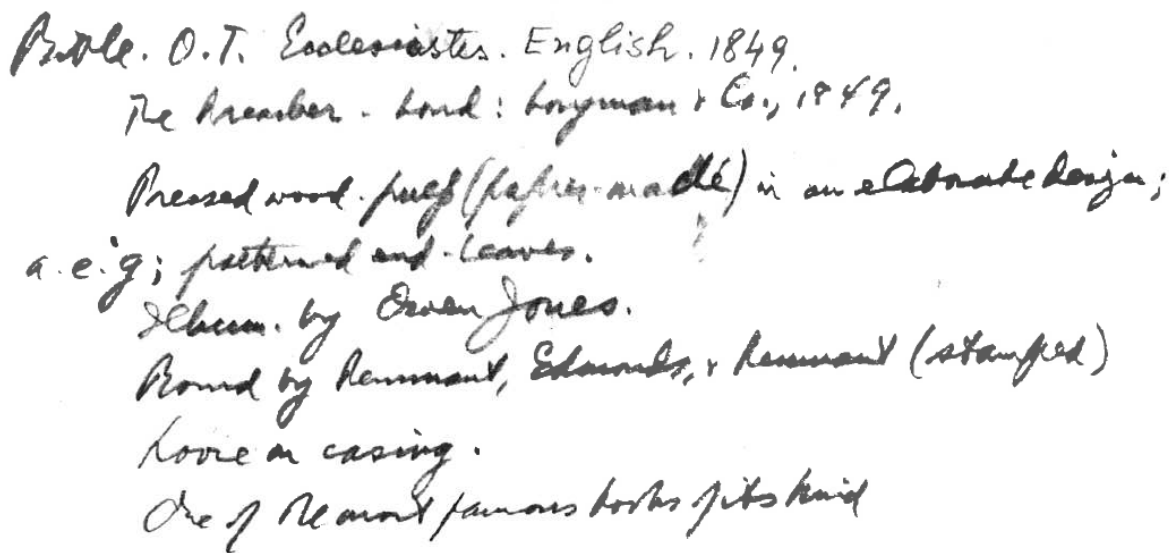 Bible. O.T. Ecclesiastes. English. 1849.
The Preacher. Lond: Longman & Co., 1849.
Pressed wood-pulp (papier-maché) in an elaborate design;
a.e.g; patterned end-leaves.
Illum. by Owen Jones.
Bound by Remnant, Edmonds, & Remnant (stamped)
Loose in casing.
One of the most famous books of its kind